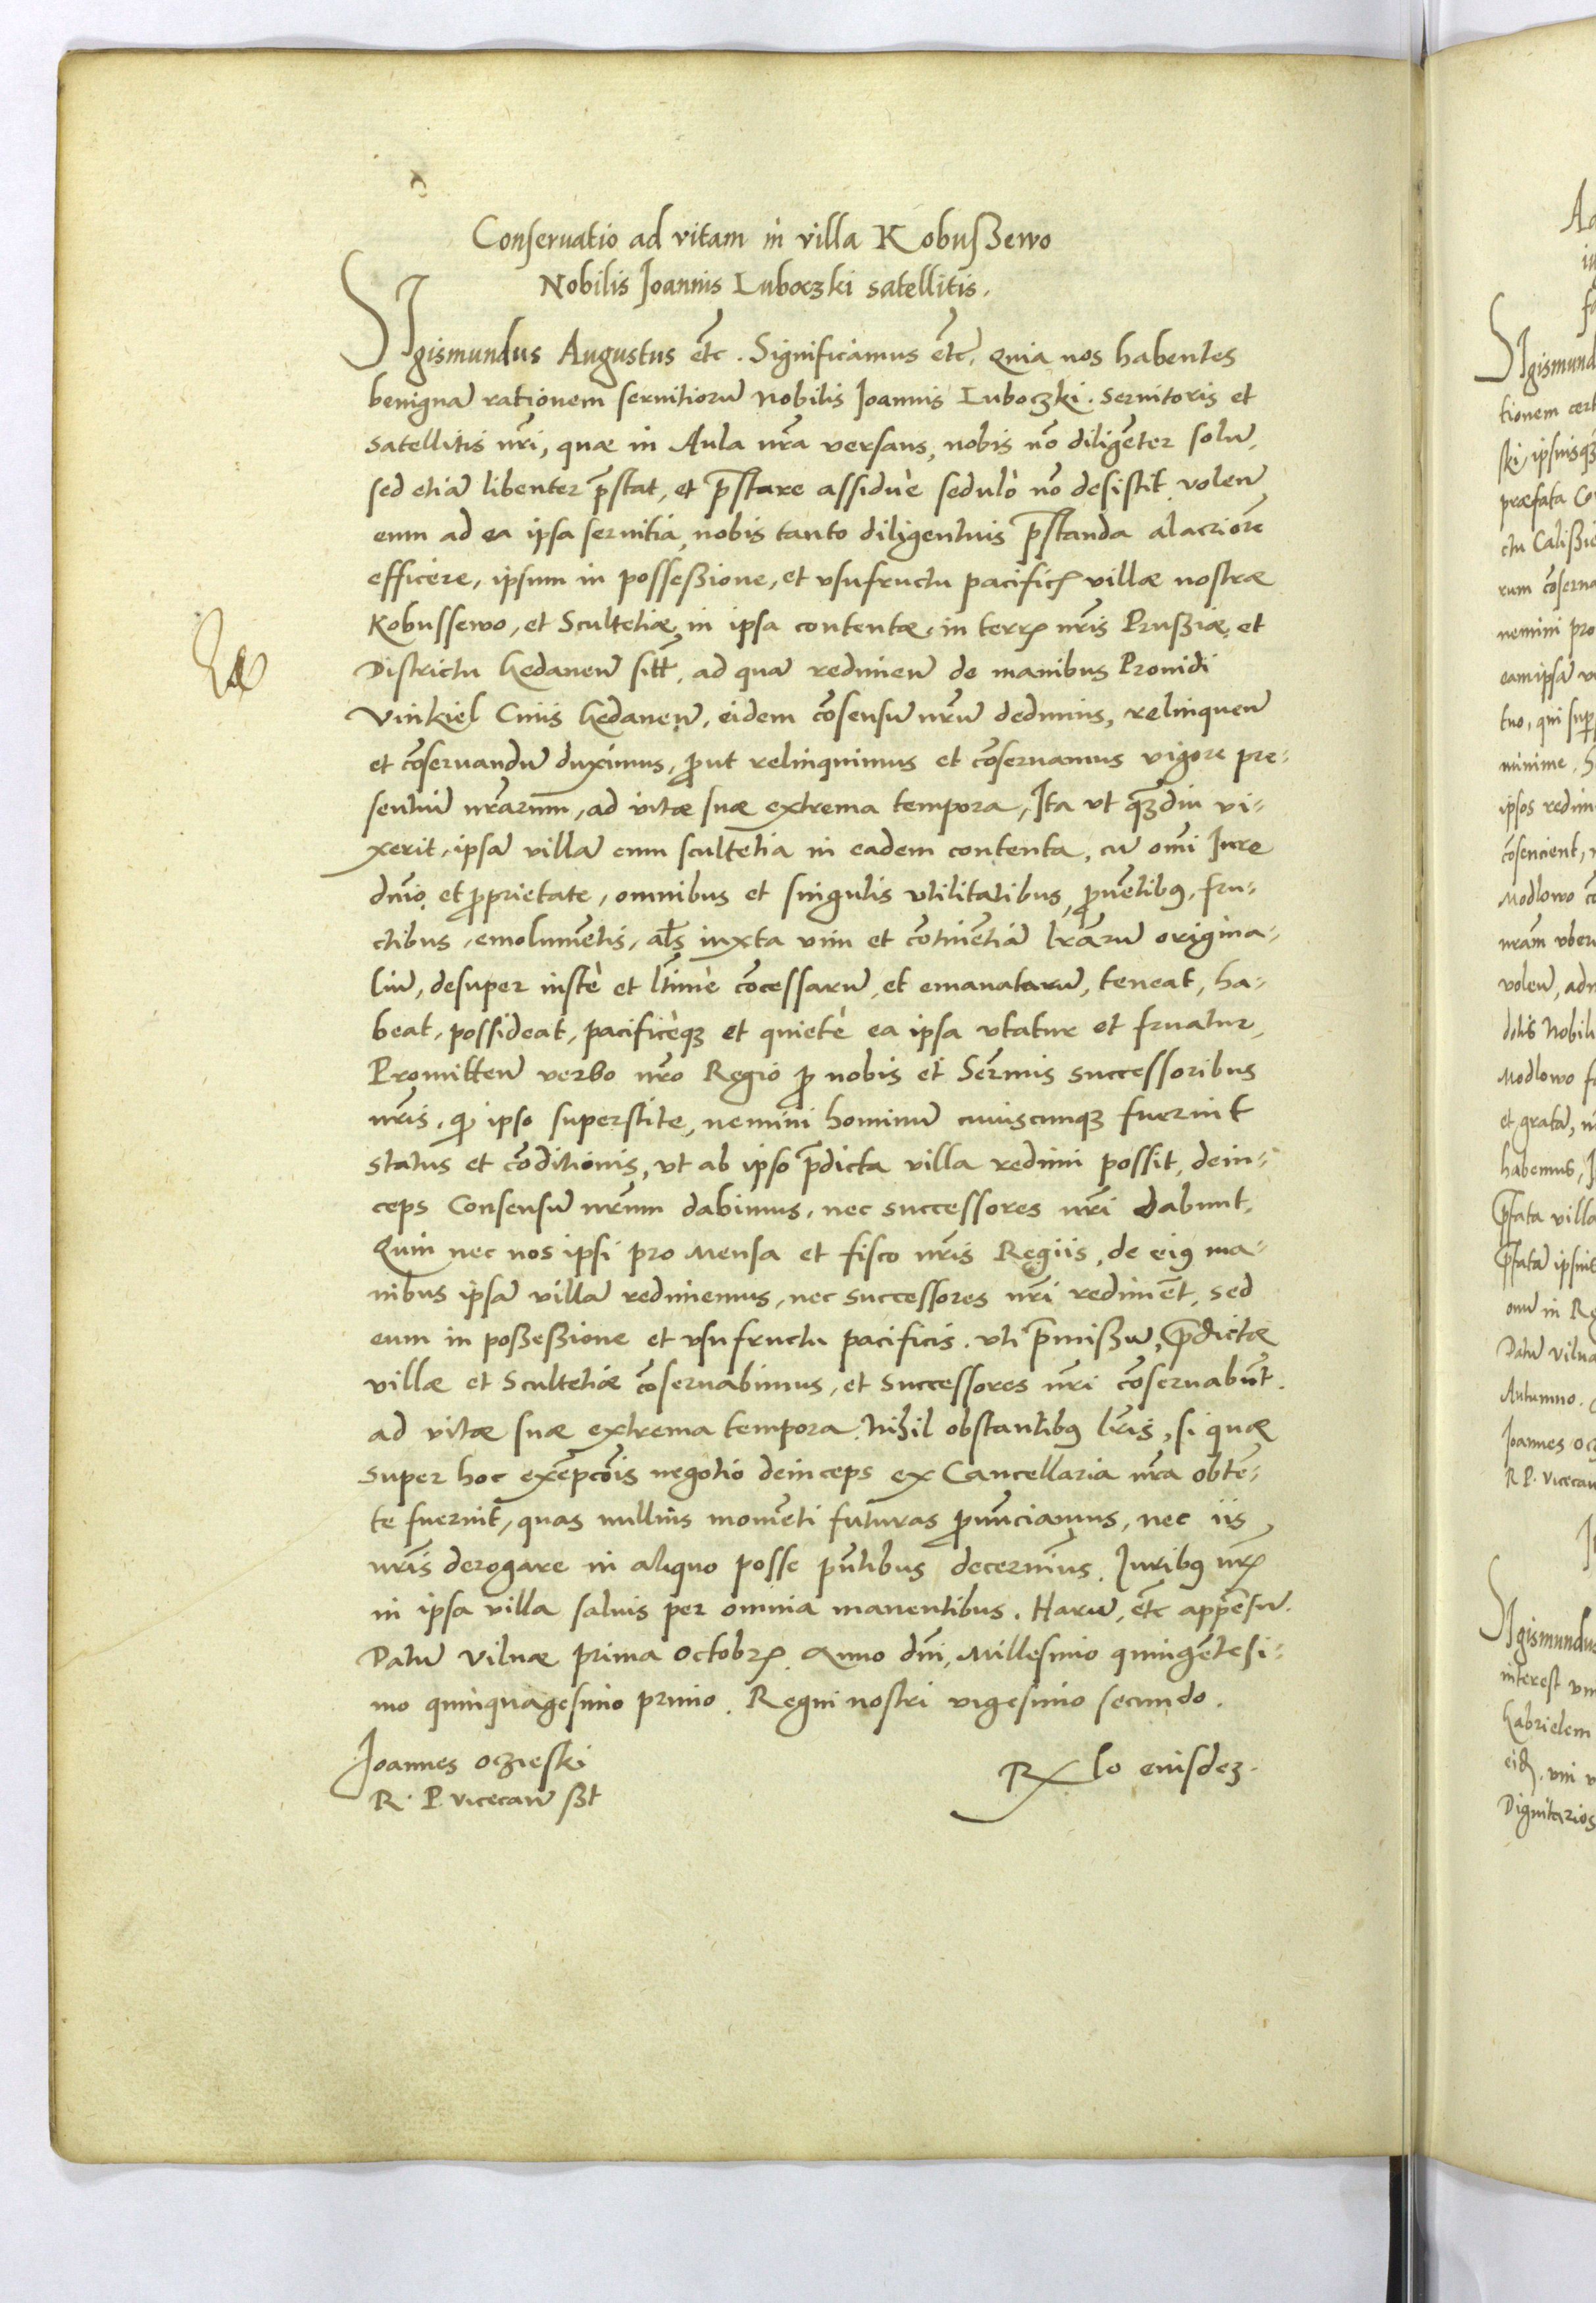 Conseruatio ad vitam in villa Kobusßewo
Nobilis Joannis Luboczki satellitis.
SIgismundus Augustus etc̃. Significamus etc̃. Quia nos habentes
benignã rationem seruitiorũ Nobilis Joannis Luboczki. Seruitoris et
Satellitis nr̃i, quæ in Aula nr̃a versans, nobis nõ diligẽter solũ,
sed etiã libenter p̃stat, et p̃stare assiduè sedulò nõ desistit, volen̄
eum ad ea ipsa seruitia, nobis tanto diligentius p̃standa alacriorẽ
efficere, ipsum in posseßione, et vsufructu pacificꝭ villæ nostræ
Kobussewo, et Scultetiæ in ipsa contentæ, in terrꝭ nr̃is Prußiæ, et
Districtu Gedanen̄ sitt̃, ad quã redimen̄ de manibus Prouidi
Vinkiel Ciuis Gedanen̄, eidem cõsensũ nr̃ũ dedimus, relinquen̄
et cõseruandũ duximus, ꝓut relinquimus et cõseruamus vigore pre-
sentiũ nr̃arum, ad vitæ suæ extrema tempora, Ita vt qꝫdiu vi-
xerit, ipsã villã cum scultetia in eadem contenta, cũ om̃i Jure
dnĩo, et ꝓprietate, omnibus et singulis vtilitatibus, ꝓuẽtibꝰ, fru-
ctibus, emolumẽtis, al̃s iuxta vim et cõtinẽtiã lr̃arũ origina-
liũ, desuper iustè et lt̃imè cõcessarũ, et emanatarũ, teneat, ha-
beat, possideat, pacificèqꝫ et quietè ea ipsa vtatur et fruatur,
Promitten̄ verbo nr̃o Regio ꝓ nobis et Ser̃mis successoribus
nr̃is, ꝙ ipso superstite, nemini hominũ cuiuscunqꝫ fuerint
status et cõditionis, vt ab ipso p̃dicta villa redimi possit, dein-
ceps Consensũ nr̃um dabimus, nec successores nr̃i dabunt,
Quin nec nos ipsi pro Mensa et fisco nr̃is Regiis, de eiꝰ ma-
nibus ipsã villã redimemus, nec successores nr̃i redimẽt, sed
eum in poßeßione et vsufructu pacificis. vti p̃mißũ, p̃dictæ
villæ et Scultetiæ cõseruabimus, et Successores nr̃i cõseruabũt.
ad vitæ suæ extrema tempora. Nihil obstantibꝰ lr̃is, si quæ
super hoc exẽpcõis negotio deinceps ex Cancellaria nr̃a obtẽ-
te fuerint, quas nullius momẽti futuras ꝓnũciamus, nec iis
nr̃is derogare in aliquo posse pñtibus decernim̃us. Juribꝰ nr̃ꝭ
in ipsa villa saluis per omnia manentibus. Harũ, etc̃ appẽsũ.
Datũ Vilnæ prima Octobrꝭ. Anno dñi, Millesimo quingẽtesi-
mo quinquagesimo primo. Regni nostri vigesimo secundo.
Joannes Oczieski
R. P. vicecan̄ sßt
Rx lo eiusdeꝫ.